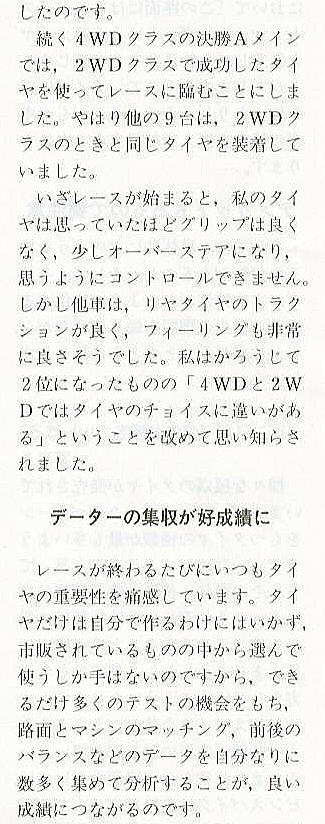 したのです。
　続く４ＷＤクラスの決勝Ａメイン
では，２ＷＤクラスで成功したタイ
ヤを使ってレースに臨むことにしま
した。やはり他の９台は，２ＷＤク
ラスのときと同じタイヤを装着して
いました。
　いざレースが始まると，私のタイ
ヤは思っていたほどグリップは良く
なく，少しオーバーステアになり，
思うようにコントロールできません。
しかし他車は，リヤタイヤのトラク
ションが良く，フィーリングも非常
に良さそうでした。私はかろうじて
２位になったものの「４ＷＤと２Ｗ
Ｄではタイヤのチョイスに違いがあ
る」ということを改めて思い知らさ
れました。
データーの集収が好成績に
　レースが終わるたびにいつもタイ
ヤの重要性を痛感しています。タイ
ヤだけは自分で作るわけにはいかず，
市販されているものの中から選んで
使うしか手はないのですから，でき
るだけ多くのテストの機会をもち，
路面とマシンのマッチング，前後の
バランスなどのデータを自分なりに
数多く集めて分析することが，良い
成績につながるのです。